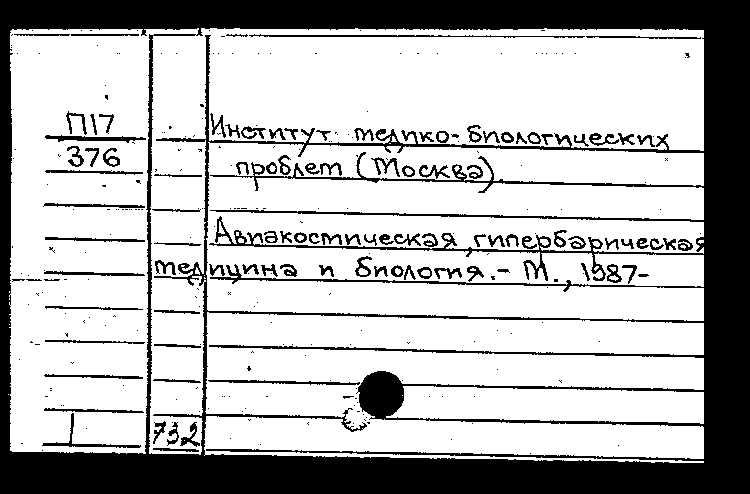 П17
376
Институт медико-биологических
проблем (Москва)
Авиакосмическая, гипербарическая
медицина и биология. - М., 1987-
732